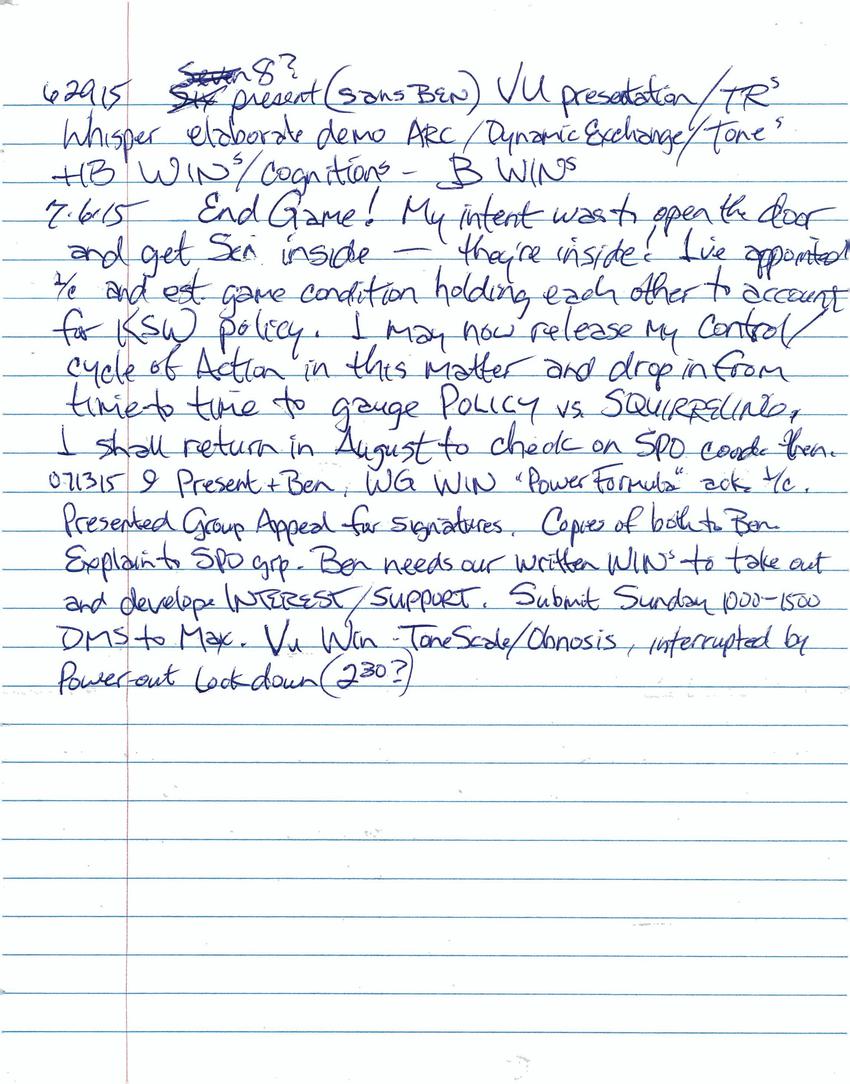 Seven 8?
62915 Six present (sans BEN) VU presentation/TRs
Whisper elaborate demo ARC/Dynamic Exchange/Tone s
+HB WINs/Cognitions - B WINs
7.6.15 End Game! My intent was to open the door
and get Scn inside — they're inside! I've appointed
I/C and est. game condition holding each other to account
for KSW policy. I may now release my Control/
cycle of Action in this matter and drop in from
time to time to gauge POLICY vs. SQUIRRELING,
I shall return in August to check on SPO then.
071315 9 Present + Ben, WG WIN "Power Formula" ack I/C.
Presented Group Appeal for signatures. Copies of both to Ben.
Explain to SPO grp. Ben needs our written WINs to take out
and develope INTEREST/SUPPORT. Submit Sunday 1000-1500
DMS to Max. Vu Win - ToneScale/Obnosis, interrupted by
Power-out Lockdown (230?)